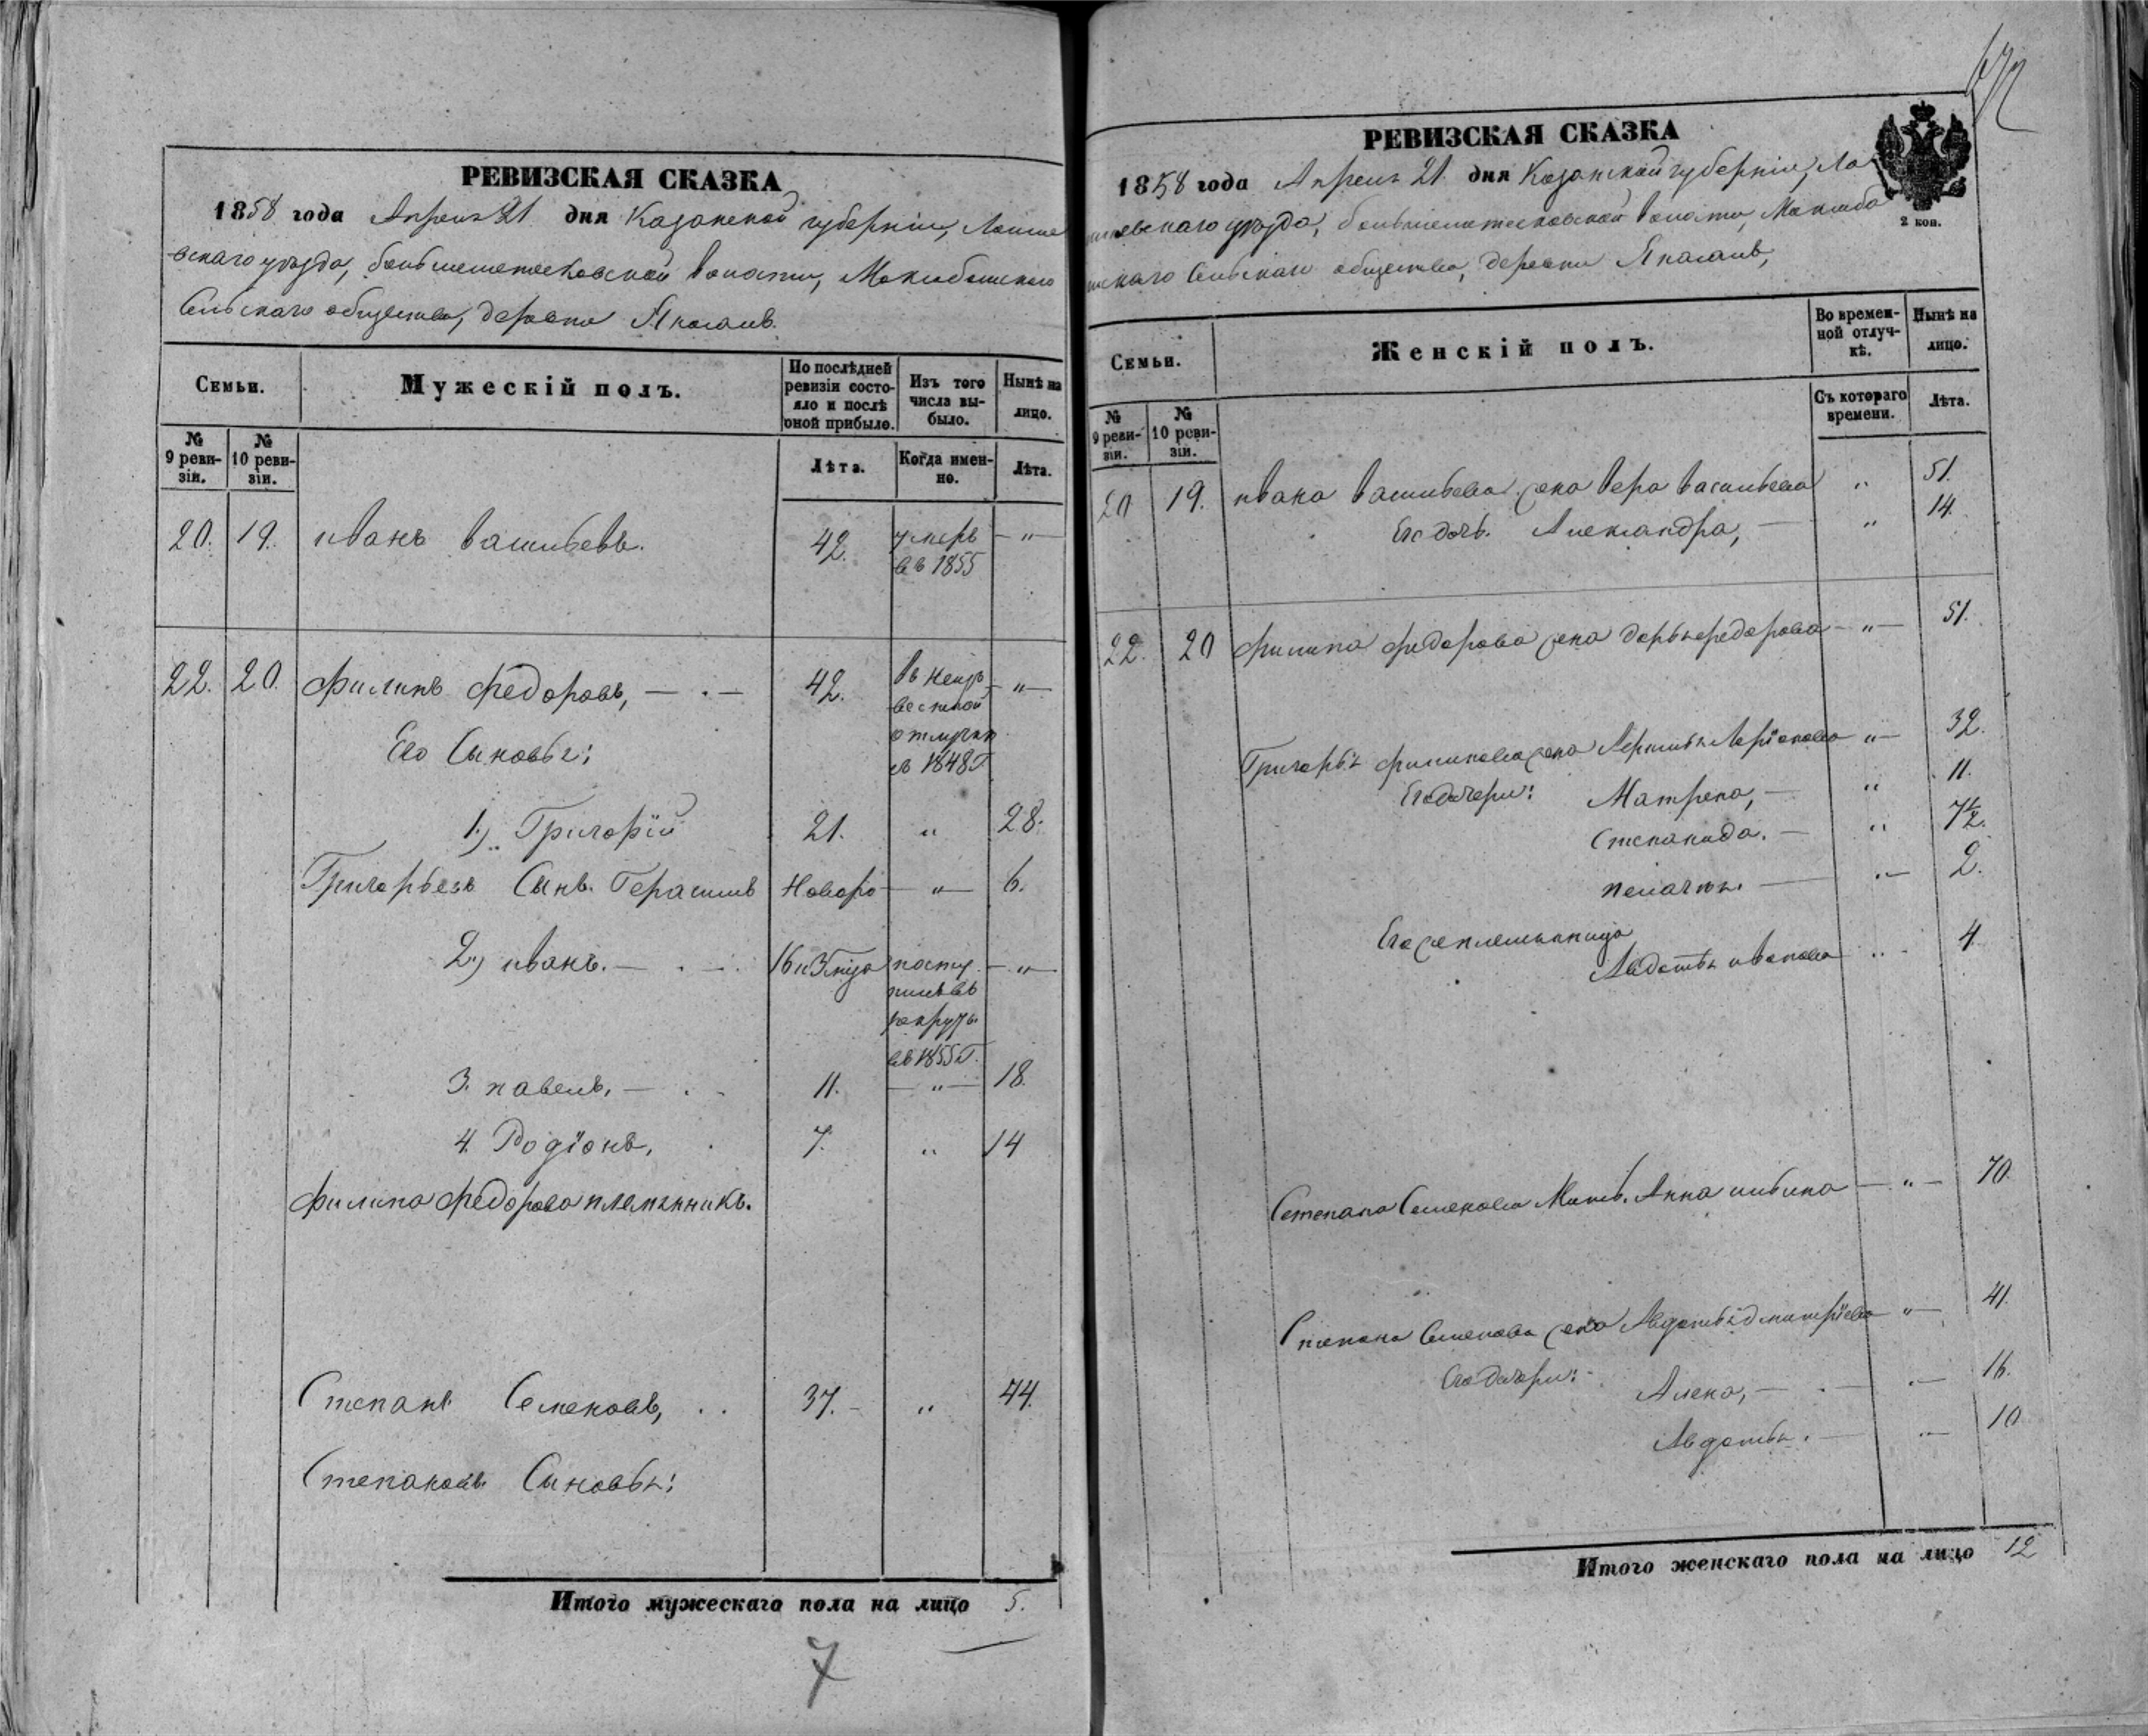 РЕВИЗСКАЯ СКАЗКА
1858 года Апреля 21 дня Казанской губерніи, Лаише
вскаго уѣзда, большеметесковской волости,
Сельскаго общества, деревни
Семьи.
Мужескій полъ.
По послѣдней ревизіи состояло и послѣ оной прибыло.
Изъ того числа выбыло.
Нынѣ на лицо.
№ 9 ревизіи.
№ 10 ревизіи.
Лѣта.
Когда именно.
Лѣта.
20. 19. иванъ васильевъ. 42. умеръ — " —
въ 1855
22. 20. Филипъ Федоровъ, — . — 42. въ неиз — " —
вестной
отлучки
съ 1848 Г
Его Сыновья:
1.) Григорій 21. " 28.
Григорьевъ Сынъ. Герасимъ Новоро — " — 6.
2.) иванъ. — . — 16 посту — " —
пилъ въ
рекруты
въ 1855 Г.
3. павелъ, — . 11. — " — 18.
4. Родіонъ, 7. " 14
Филипа Федорова племянникъ.
Степанъ Семеновъ, . . 37. — " 44.
Степановы Сыновья:
Итого мужескаго пола на лицо 5.
7
РЕВИЗСКАЯ СКАЗКА
1858 года Апреля 21 дня Казанской губерніи, Ла
ишевскаго уѣзда, большеметесковской волости,
Сельскаго общества, деревни
2 коп.
Семьи.
Женскій полъ.
Во временной отлучкѣ.
Нынѣ на лицо.
№ 9 ревизіи.
№ 10 ревизіи.
Съ котораго времени.
Лѣта.
20 19. ивана васильева жена вера васильева " 51.
Его дочь. Александра, — " 14.
22. 20 Филипа Федорова жена дарья федорова — " — 51.
Григорья филипова жена Ларіонова " — 32.
Его дочери: Матрена, — " 11.
Степанида. — " 7½.
пелагея. — " — 2.
Его племянница
Авдотья иванова " 4.
Степана Семенова Мать. Анна ильина — " — 70.
Степана Семенова жена Авдотья дмитріева " — 41.
Его дочери:
Алена, — . — " — 16.
Авдотья. — " — 10
Итого женскаго пола на лицо 12